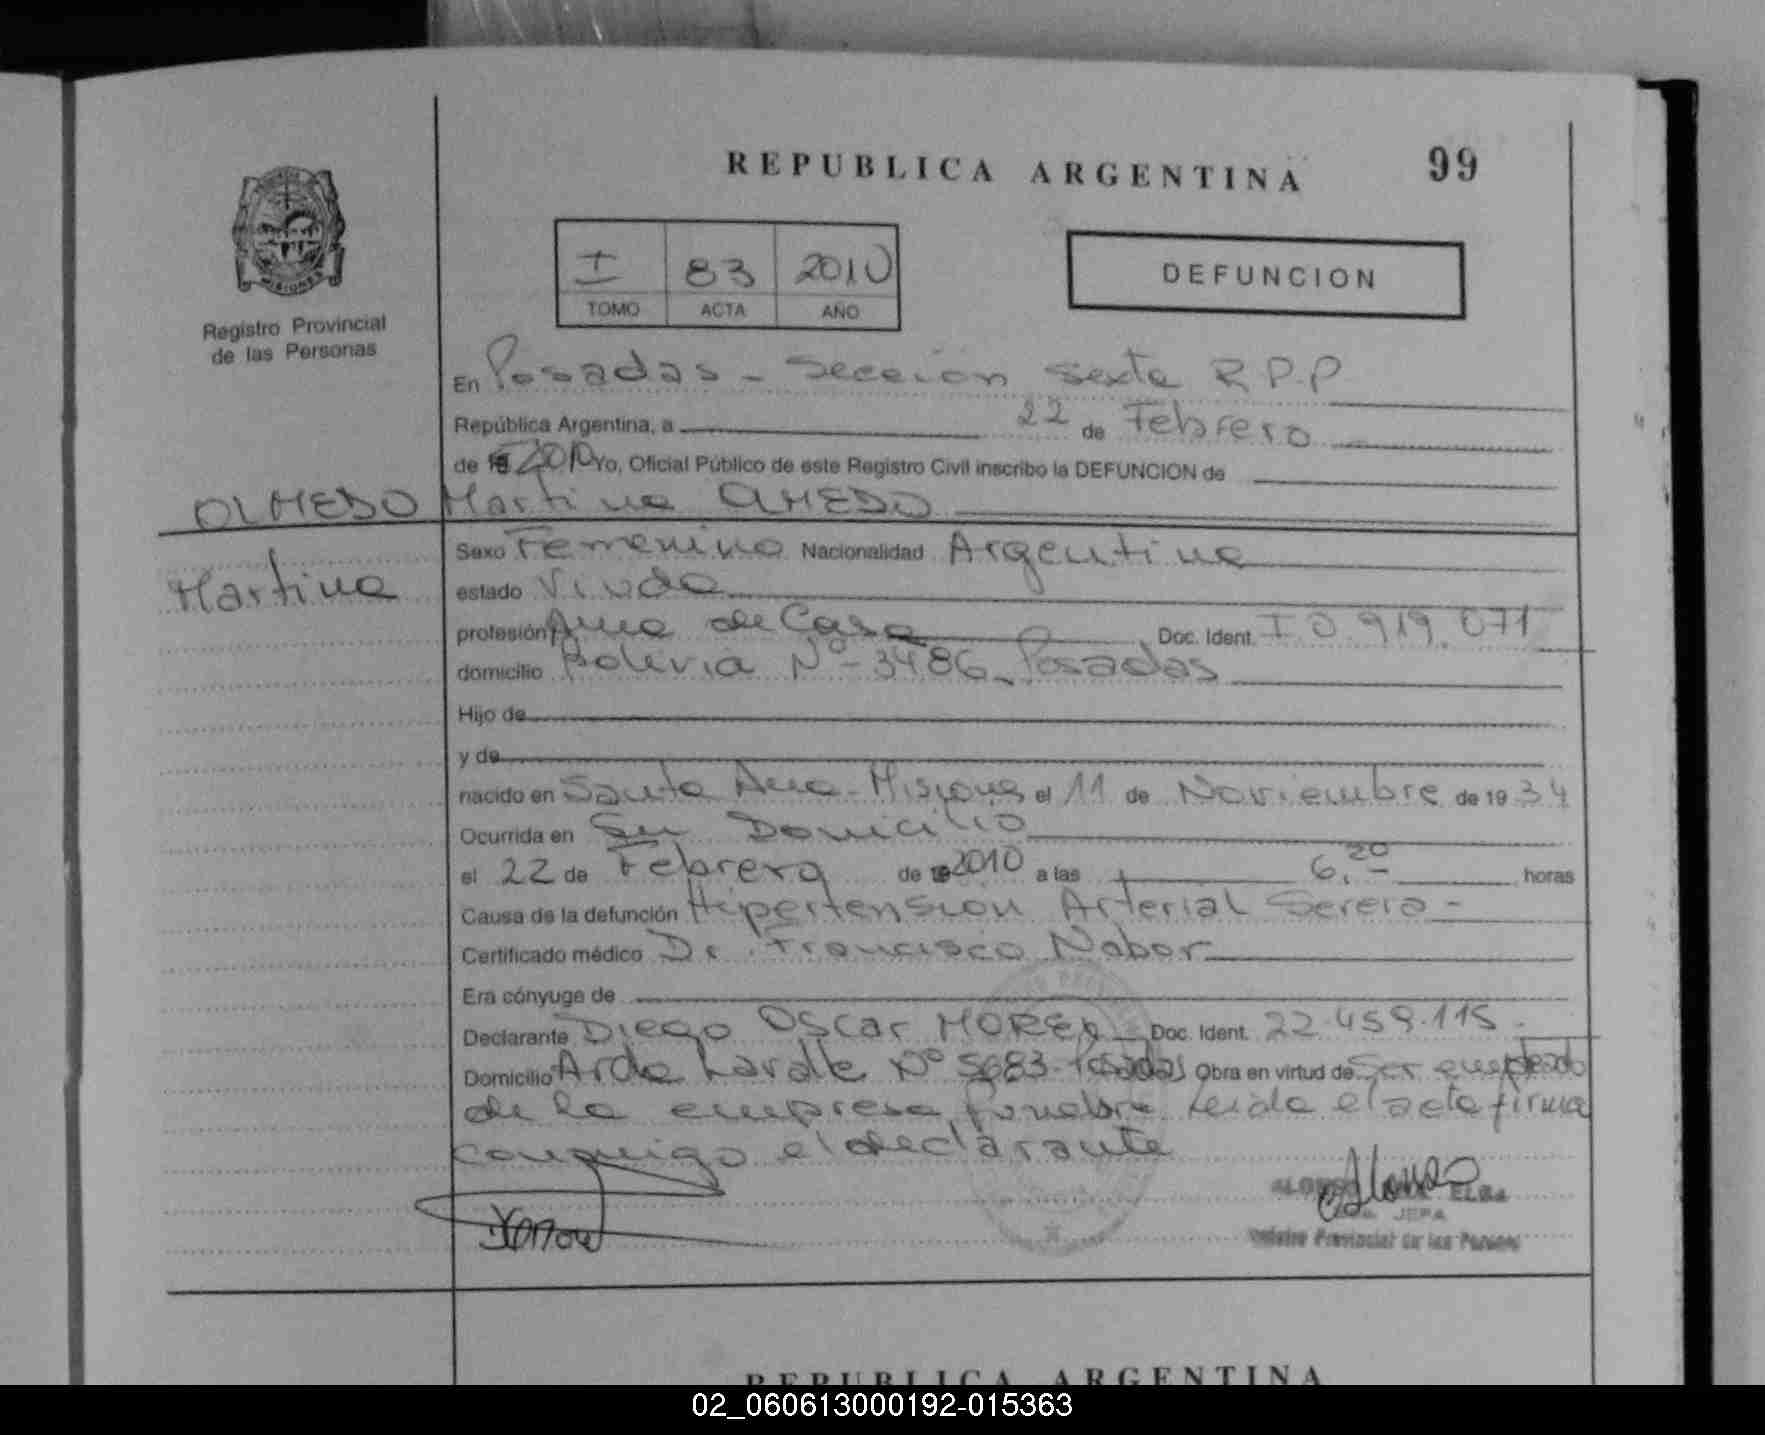 REPUBLICA ARGENTINA 99
MISIONES
Registro Provincial
de las Personas
I 83 2010
TOMO ACTA AÑO
DEFUNCION
En Posadas - Sección sexta R.P.P
República Argentina, a 22 de Febrero
de 2010 Yo, Oficial Público de este Registro Civil inscribo la DEFUNCION de
OLMEDO Martina OLMEDO
Martina
Sexo Femenino Nacionalidad Argentina
estado Viuda
profesión Ama de Casa Doc. Ident. I 0.919.071
domicilio Bolivia Nº - 3486 - Posadas
Hijo de
y de
nacido en Santa Ana - Misiones el 11 de Noviembre de 19 34
Ocurrida en Su Domicilio
el 22 de Febrero de 2010 a las 6,20 horas
Causa de la defunción Hipertension Arterial Severa -
Certificado médico Dr. Francisco Nabor
Era cónyuge de
Declarante Diego Oscar MOREL Doc. Ident. 22.459.115.
Domicilio Avda Nº 5683 - Posadas Obra en virtud de ser empleado
de la empresa funebre Leida el acta firma
conmigo el declarante
ALONSO ELBA
JEFA
Registro Provincial de las Personas
REPUBLICA ARGENTINA
02_060613000192-015363